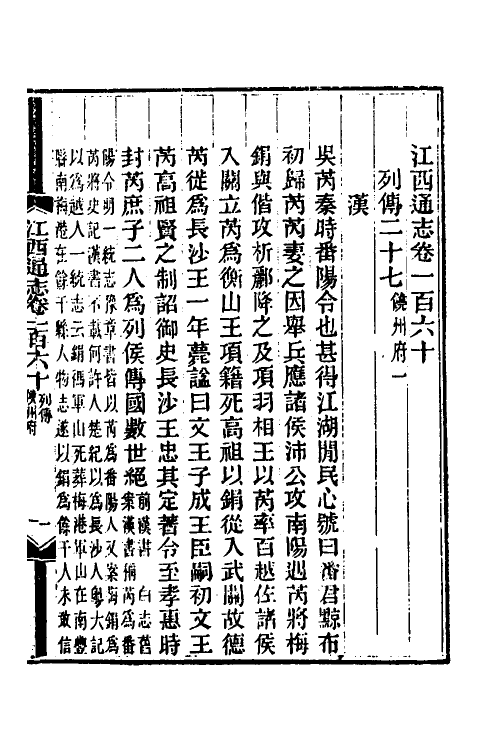 江西通志卷一百六十
列傳二十七 饒州府一
漢
吳芮秦時番陽令也甚得江湖閒民心號曰番君黥布
初歸芮芮妻之因舉兵應諸侯沛公攻南陽遇芮將梅
鋗與偕攻析酈降之及項羽相王以芮率百越佐諸侯
入關立芮爲衡山王項籍死高祖以鋗從入武關故德
芮從爲長沙王一年薨諡曰文王子成王臣嗣初文王
芮高祖賢之制詔御史長沙王忠其定著令至孝惠時
封芮庶子二人爲列侯傳國數世絕 前漢書 白志舊
案漢書稱芮爲番
陽令明一統志豫章書皆以芮爲番陽人又案梅鋗爲
芮將史記漢書不載何許人楚紀以爲長沙人粵大記
以爲越人一統志云鋗軍山死葬梅港軍山在南豐
縣南梅港在餘干縣人物志遂以鋗爲餘干人未敢信
江西通志卷一百六十 列傳 饒州府 一